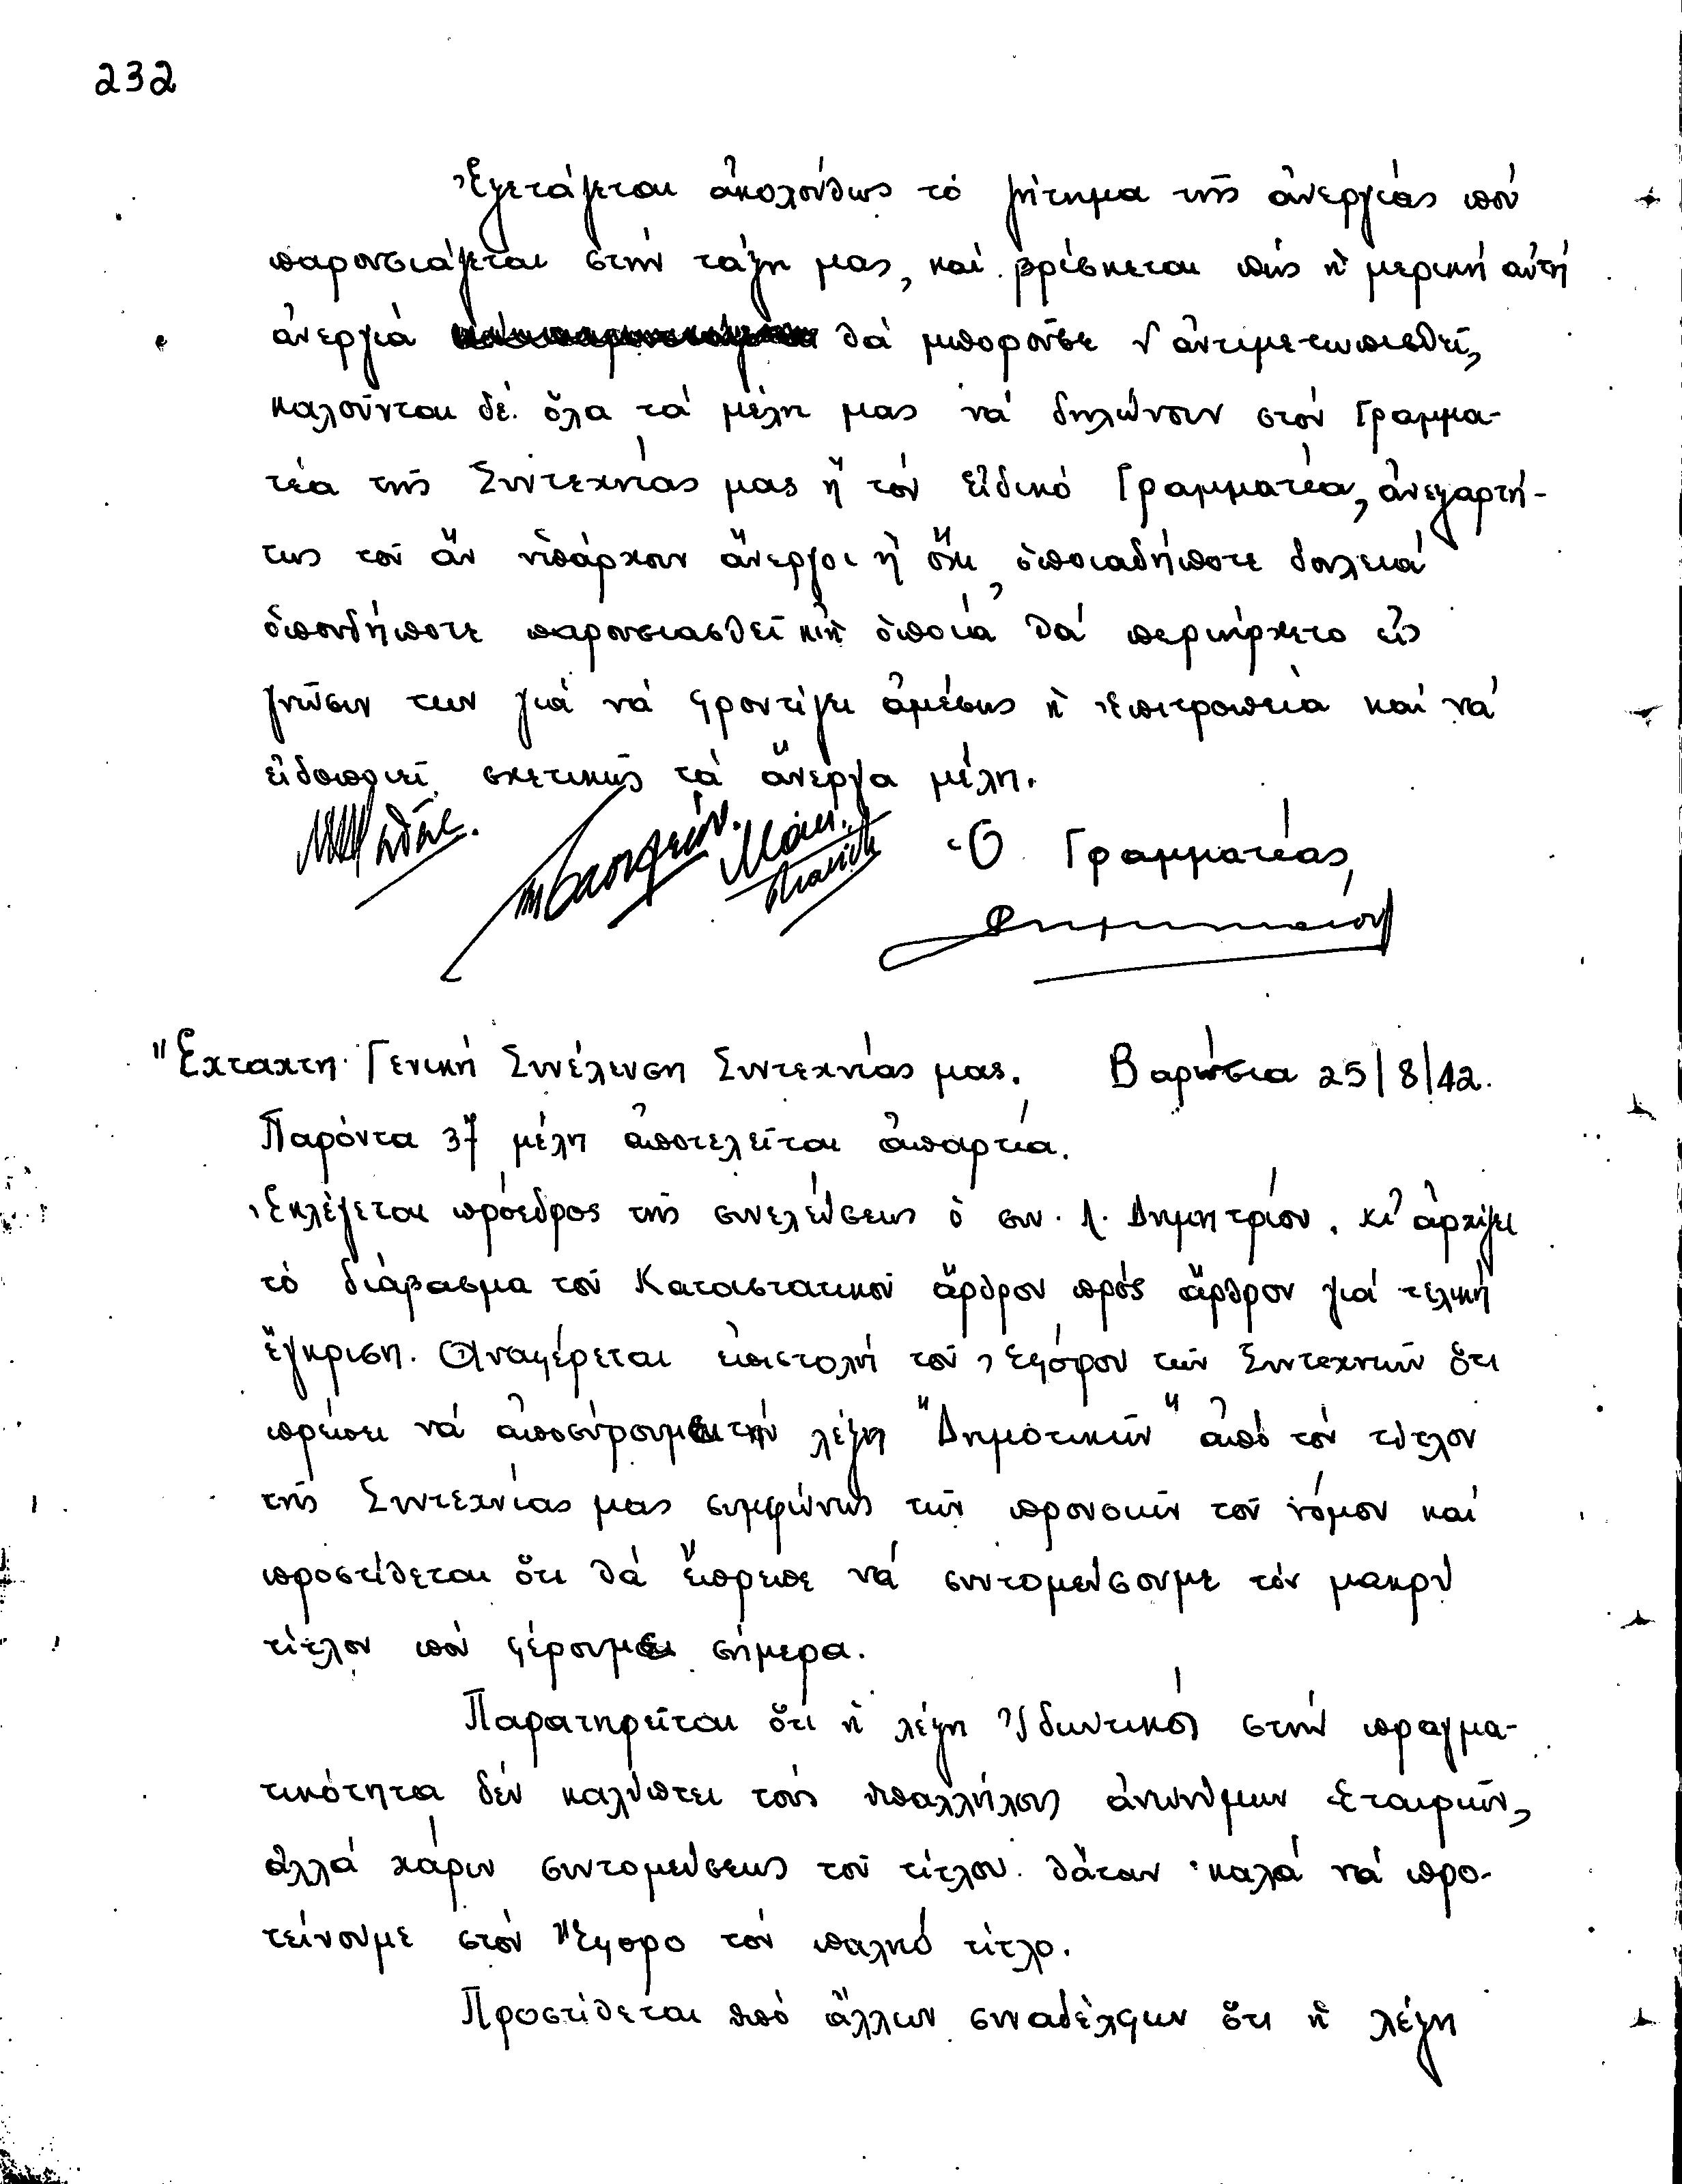 232
Ἐξετάζεται ἀκολούθως τό ζήτημα τῆς ἀνεργίας πού
παρουσιάζεται στήν τάξη μας, καί βρίσκεται πώς ἡ μερική αὐτή
ἀνεργιά θά μποροῦσε ν ἀντιμετωπισθεῖ,
καλοῦνται δέ ὅλα τά μέλη μας νά δηλώνουν στόν Γραμμα-
τέα τῆς Συντεχνίας μας ἤ τόν εἰδικό Γραμματέα, ἀνεξαρτή-
τως τοῦ ἄν ὑπάρχουν ἄνεργοι ἤ ὄχι, ὁποιαδήποτε δουλειά
ὁπουδήποτε παρουσιασθεῖ κι ἡ ὁποία θά περιήρχετο εἰς
γνῶσιν των γιά νά φροντίζει ἀμέσως ἡ Ἐπιτροπεία καί νά
εἰδοποιεῖ σχετικῶς τά ἄνεργα μέλη.
Ὁ Γραμματέας,
Ἔχτακτη Γενική Συνέλευση Συντεχνίας μας. Βαρώσια 25/8/42.
Παρόντα 37 μέλη ἀποτελεῖται ἀπαρτία.
Ἐκλέγεται πρόεδρος τῆς συνελεύσεως ὁ συν. Λ. Δημητρίου. κι' ἀρχίζει
τό διάβασμα τοῦ Καταστατικοῦ ἄρθρον πρός ἄρθρον γιά τελική
ἔγκριση. Ἀναφέρεται ἐπιστολή τοῦ Ἐφόρου τῶν Συντεχνιῶν ὅτι
πρέπει νά ἀποσύρουμε τήν λέξη "Δημοτικῶν" ἀπό τόν τίτλον
τῆς Συντεχνίας μας συμφώνως τῶν προνοιῶν τοῦ νόμου καί
προστίθεται ὅτι θά ἔπρεπε νά συντομεύσουμε τόν μακρύ
τίτλον πού φέρουμε σήμερα.
Παρατηρεῖται ὅτι ἡ λέξη Ἰδιωτικοί στήν πραγμα-
τικότητα δέν καλύπτει τούς ὑπαλλήλους ἀνωνύμων Ἑταιριῶν,
ἀλλά χάριν συντομεύσεως τοῦ τίτλου θἆταν καλά νά προ-
τείνουμε στόν Ἔφορο τόν παληό τίτλο.
Προστίθεται ὑπό ἄλλων συναδέλφων ὅτι ἡ λέξη